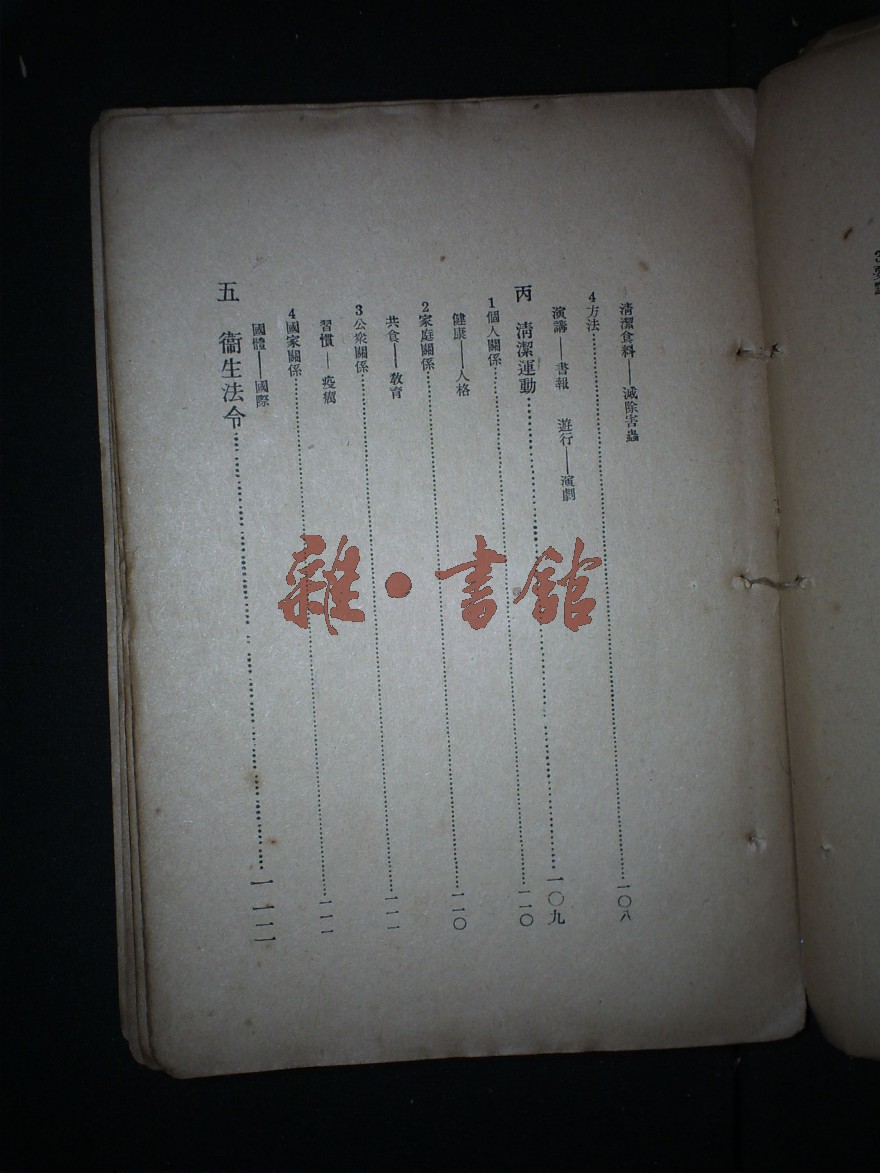 清潔食料——滅除害蟲
4方法……一〇八
演講——書報　遊行——演劇
丙　清潔運動……一〇九
1個人關係……一一〇
健康——人格
2家庭關係……一一〇
共食——教育
3公衆關係……一一一
習慣——疫癘
4國家關係……一一一
國體——國際
五　衞生法令……一一二
雜·書館